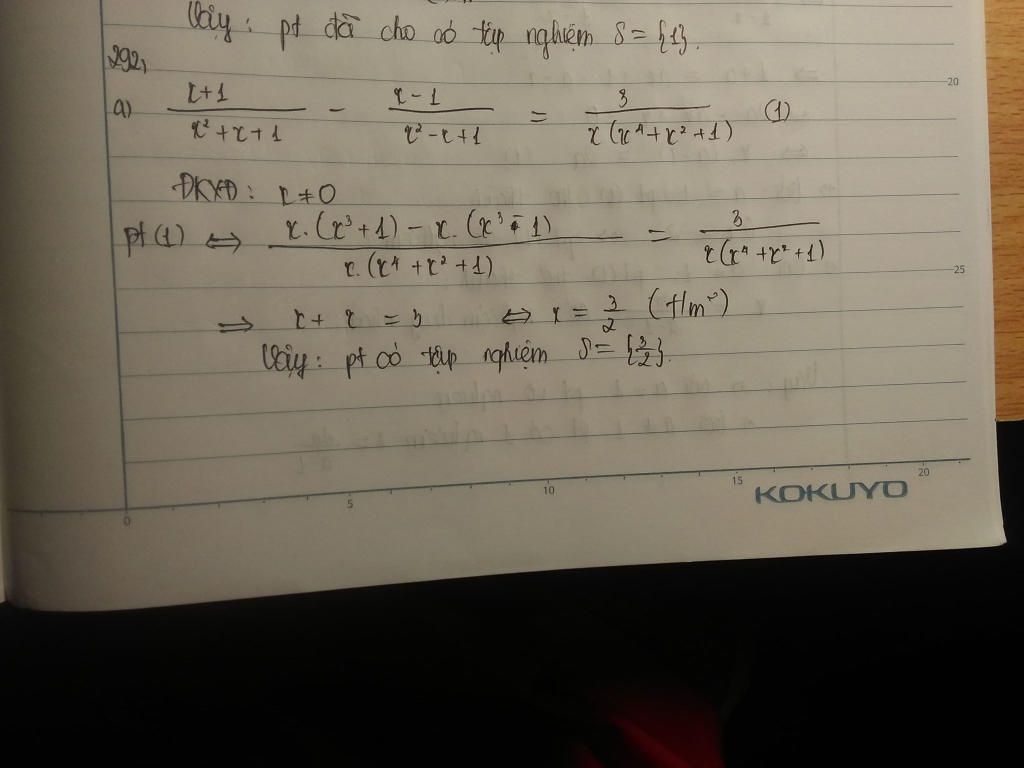 Vậy: pt đã cho có tập nghiệm S = {1}.
292,
a) (x+1)/(x²+x+1) - (x-1)/(x²-x+1) = 3/(x(x⁴+x²+1)) (1)
ĐKXĐ: x ≠ 0
pt (1) ⇔ (x.(x³+1) - x.(x³-1))/(x.(x⁴+x²+1)) = 3/(x(x⁴+x²+1))
⇒ x + x = 3 ⇔ x = 3/2 (t/m)
Vậy: pt có tập nghiệm S = {3/2}.
20
25
0 5 10 15 20
KOKUYO